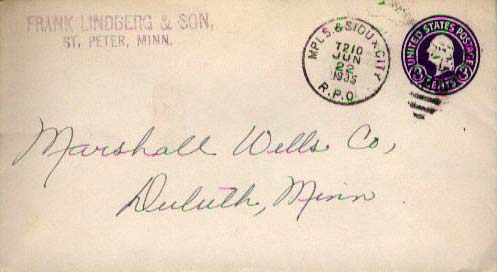 FRANK LINDBERG & SON,
ST. PETER, MINN.
MPLS. & SIOUX CITY
T210
JUN
22
1935
R.P.O.
UNITED STATES POSTAGE
3 CENTS 3
Marshall Wells Co,
Duluth, Minn.